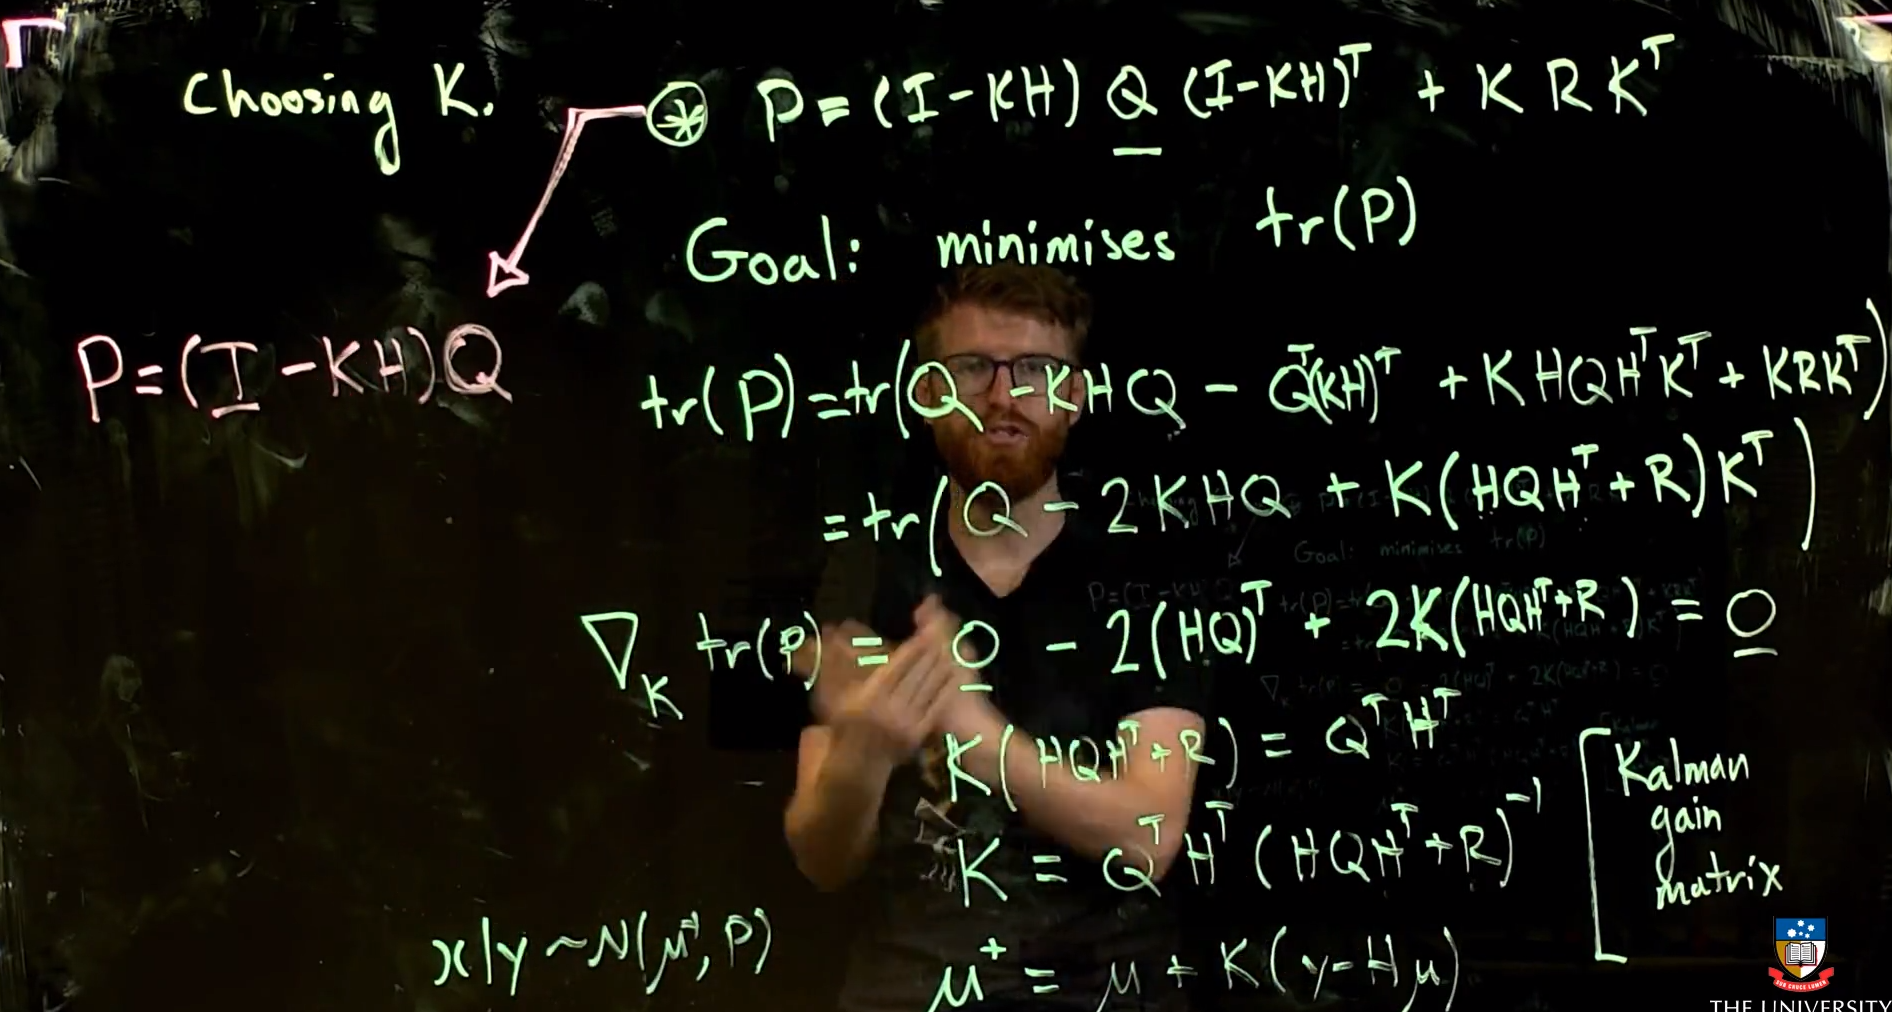 Choosing K.
⊛ P = (I - KH) Q (I - KH)ᵀ + K R Kᵀ
Goal: minimises tr(P)
P = (I - KH) Q
tr(P) = tr(Q - KHQ - Qᵀ(KH)ᵀ + KHQHᵀKᵀ + KRKᵀ)
= tr(Q - 2KHQ + K(HQHᵀ + R)Kᵀ)
∇_K tr(P) = 0 - 2(HQ)ᵀ + 2K(HQHᵀ + R) = 0
K(HQHᵀ + R) = QᵀHᵀ
K = QᵀHᵀ(HQHᵀ + R)⁻¹
Kalman
gain
matrix
x|y ~ N(μ⁺, P)
μ⁺ = μ + K(y - Hμ)
THE UNIVERSITY